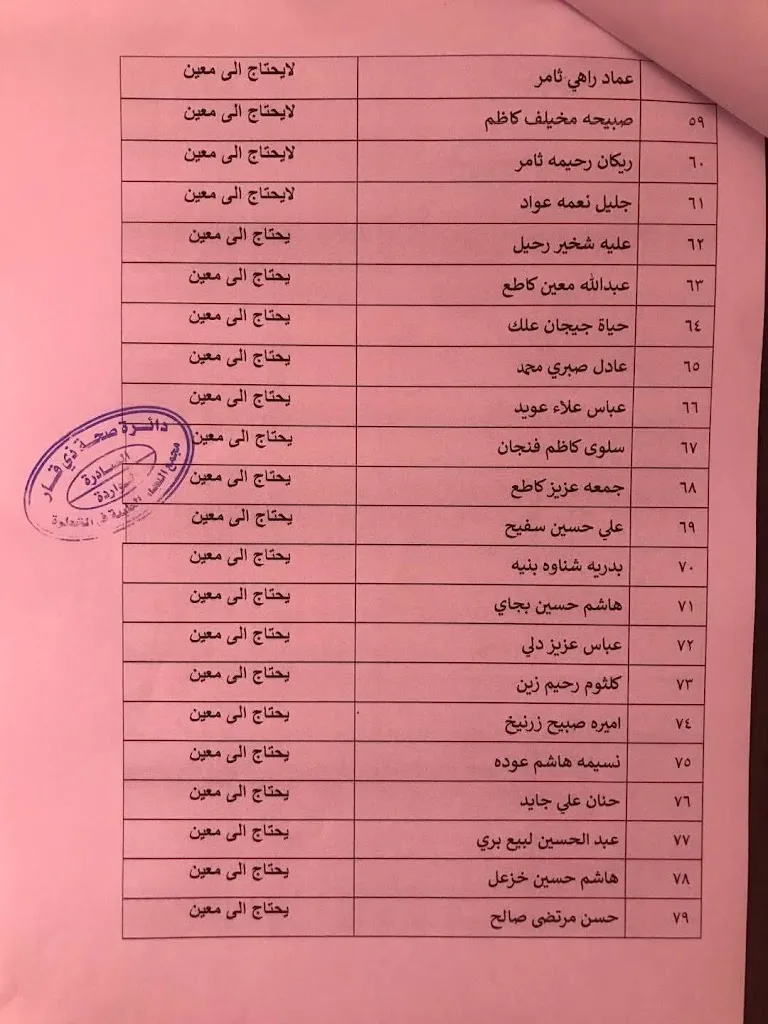 عماد راهي ثامر لايحتاج الى معين
٥٩ صبيحه مخيلف كاظم لايحتاج الى معين
٦٠ ريكان رحيمه ثامر لايحتاج الى معين
٦١ جليل نعمه عواد لايحتاج الى معين
٦٢ عليه شخير رحيل يحتاج الى معين
٦٣ عبدالله معين كاطع يحتاج الى معين
٦٤ حياة جيجان علك يحتاج الى معين
٦٥ عادل صبري محمد يحتاج الى معين
٦٦ عباس علاء عويد يحتاج الى معين
٦٧ سلوى كاظم فنجان يحتاج الى معين
٦٨ جمعه عزيز كاطع يحتاج الى معين
٦٩ علي حسين سفيح يحتاج الى معين
٧٠ بدريه شناوه بنيه يحتاج الى معين
٧١ هاشم حسين بجاي يحتاج الى معين
٧٢ عباس عزيز دلي يحتاج الى معين
٧٣ كلثوم رحيم زين يحتاج الى معين
٧٤ اميره صبيح زرنيخ يحتاج الى معين
٧٥ نسيمه هاشم عوده يحتاج الى معين
٧٦ حنان علي جايد يحتاج الى معين
٧٧ عبد الحسين لبيع بري يحتاج الى معين
٧٨ هاشم حسين خزعل يحتاج الى معين
٧٩ حسن مرتضى صالح يحتاج الى معين
دائرة صحة ذي قار
الصادرة
الواردة
مجمع الطبية في